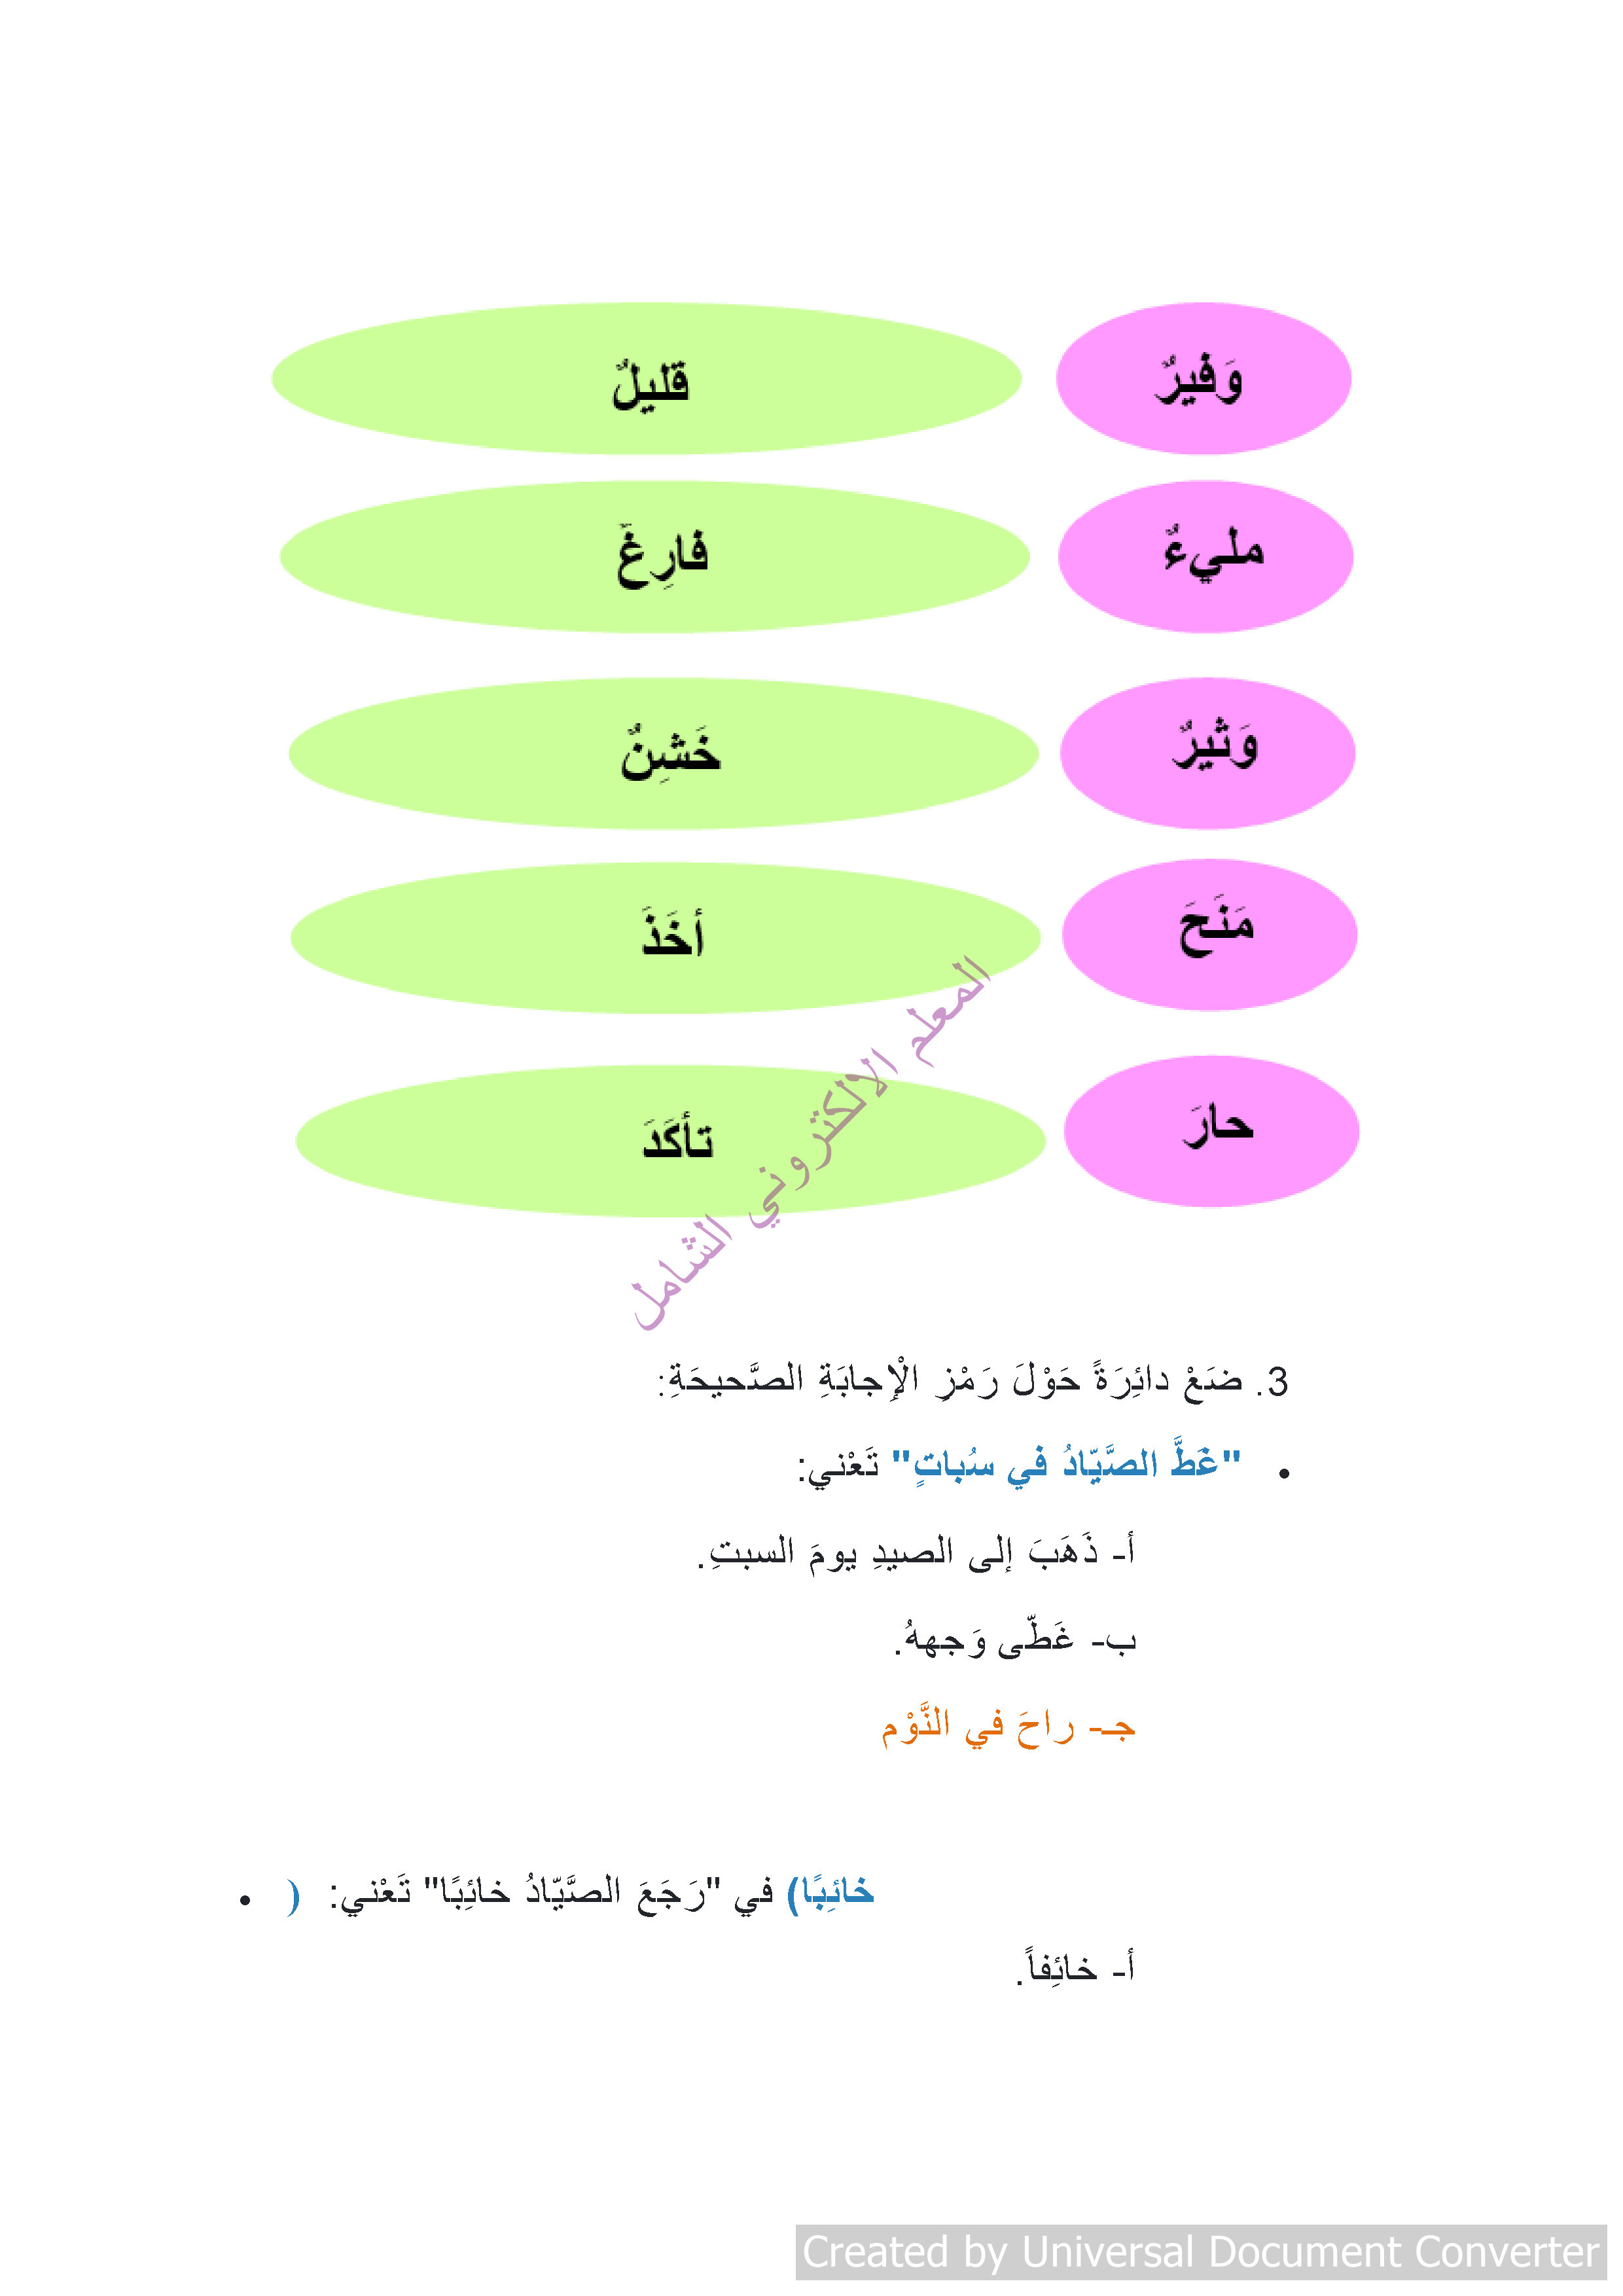 وَفيرٌ قليلٌ
مليءٌ فارِغٌ
وَثيرٌ خَشِنٌ
مَنَحَ أخَذَ
حارَ تأكَدَ
المعلم الالكتروني الشامل
3. ضَعْ دائِرَةً حَوْلَ رَمْزِ الْإجابَةِ الصَّحيحَةِ:
• "غَطَّ الصَّيّادُ في سُباتٍ" تَعْني:
أ- ذَهَبَ إلى الصيدِ يومَ السبتِ.
ب- غَطّى وَجههُ.
جـ- راحَ في النَّوْم
خائِبًا) في "رَجَعَ الصَّيّادُ خائِبًا" تَعْني: ( •
أ- خائِفاً.
Created by Universal Document Converter